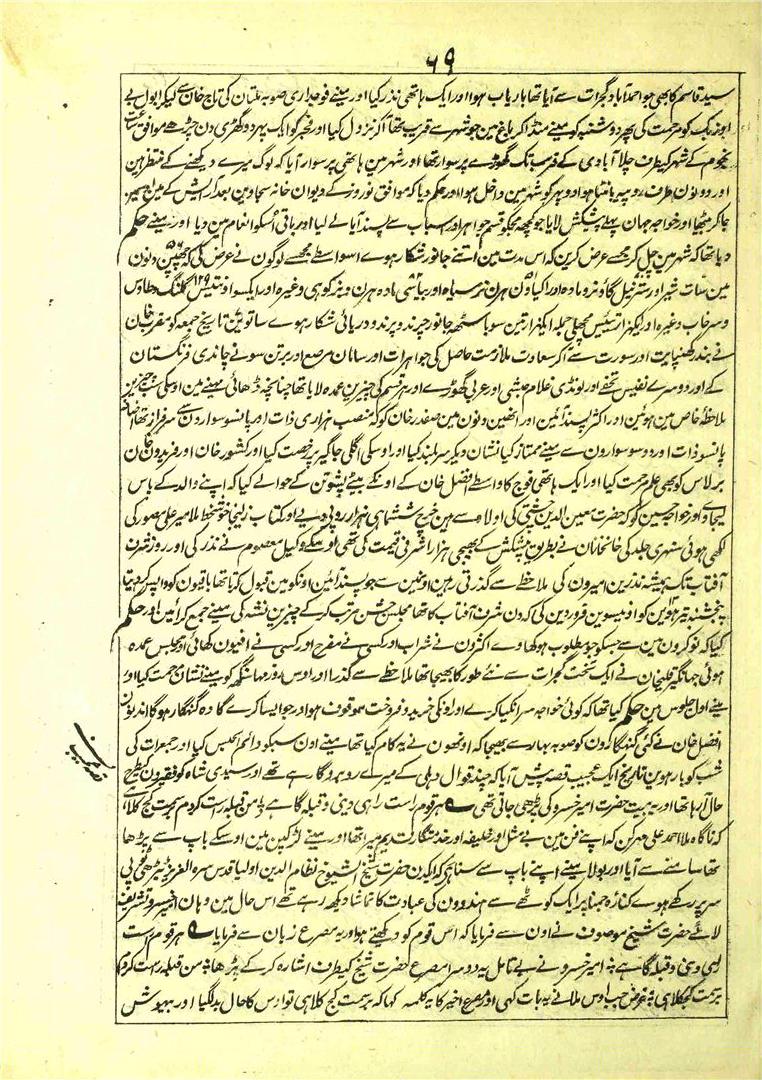 ۶۹
سید قاسم کا بھی جو احمد آباد گجرات سے آیا تھا باریاب ہوا اور ایک ہاتھی نذر کیا اور مینے فوجداری صوبہ ملتان کی تاج خان سے لیکر ابول بے
اوزبک کو مرحمت کی پھر دوشنبہ کو مینے منڈاکر باغ مین جو شہر سے قریب تھا آکر نزول کیا اور فجر کو ایک پہر دو گھڑی دن چڑھے موافق ساعت
نجوم کے شہر کیطرف چلا آبادی کے قرب تک گھوڑے پر سوار تھا اور شہر مین ہاتھی پر سوار آیا کہ لوگ میرے دیکھنے کے منتظر ہین
اور دونون طرف روپیہ بانٹتا ہوا دوپہر کو شہر مین داخل ہوا اور حکم دیا کہ موافق نوروز کے دیوان خانہ سجاوین بعد آرایش کے مین اوسمین
جاکر بیٹھا اور خواجہ جہان پہلے پیشکش لایا جو کچھ مجکو قسم جواہر اور اسباب سے پسند آیا لے لیا اور باقی اُسکو انعام مین دیا اور مینے حکم
دیا تھا کہ شہر مین چل کر مجسے عرض کرین کہ اس مدت مین اتنے جانور شکار ہوے اسواسطے مجھسے لوگون نے عرض کی کہ چھپن دنون
مین سات شیر اور ستر نیل گاؤ نر و مادہ اور اکیاون ہرن نر سیاہ اور بیاسی مادہ ہرن و بز کوہی وغیرہ اور ایکسو اونتیس ۱۲۹ کلنگ و طاؤس
و سرخاب وغیرہ اور ایکہزار تیئیس مچھلی جملہ ایکہزار تین سو باسٹھ جانور چرند و پرند و دریائی شکار ہوے ساتوین تاریخ جمعہ کو مقرب خان
نے بندر کھنپایت اور سورت سے آکر سعادت ملازمت حاصل کی جواہرات اور سامان مرصع اور برتن سونے چاندی فرنگستان
کے اور دوسرے نفیس تحفے اور لونڈی غلام حبشی اور عربی گھوڑے اور ہر قسم کی چیزین عمدہ لایا تھا چنانچہ ڈھائی مہینے مین اوسکی سب چیزین
ملاحظہ خاص مین ہوئین اور اکثر پسند آئین اور انھین دنون مین صفدر خان کو کہ منصب ہزاری ذات اور پانسو سوارون سے سرفراز تھا اضافہ
پانسو ذات اور دو سو سوارون سے مینے ممتاز کیا نشان دیکر سر بلند کیا اور اوسکی اگلی جاگیر پر رخصت کیا اور کشور خان اور فریدون خان
برلاس کو بھی علم مرحمت کیا اور ایک ہاتھی فوج کا واسطے افضل خان کے اونکے بیٹے پشوتن کے حوالے کیا کہ اپنے والد کے پاس
لیجاوے اور خواجہ حسین کو کہ حضرت معین الدین چشتی کی اولاد سے ہین خرچ ششماہی ہزار روپیہ دیے اور کتاب زلیخا خوشخط ملا میر علی مصور کی
لکھی ہوئی سنہری جلد کی خانخانان نے بطریق پیشکش کے بھیجی ہزار اشرفی قیمت کی تھی اوسکے وکیل معصوم نے نذر کی اور روز شرف
آفتاب تک ہمیشہ نذرین امیرون کی ملاحظے سے گذرتی رہین اونمین سے جو پسند آئین اونکو مین قبول کرتا تھا باقیون کو واپس کردیتا
پنجشنبہ تیرہوین کو اونیسوین فروردین کی کہ دن شرف آفتاب کا تھا مجلس جشن مرتب کرکے چیزین نشہ کی مینے جمع کرائین اور حکم
کیا کہ نوکرون مین سے جسکو جو مطلوب ہو کھاوے اکثرون نے شراب اور کسی نے مفرح اور کسی نے افیون کھائی اور مجلس عمدہ
ہوئی جہانگیر قلیخان نے ایک تخت گجرات سے نئے طور کا بھیجا تھا ملاحظے سے گذرا اور اوس روز مہاسنگھ کو مینے نشان مرحمت کیا اور
مینے اول جلوس مین حکم کیا تھا کہ کوئی خواجہ سرا نکیا کرے اور اونکی خرید و فروخت موقوف ہو اور جو ایسا کرے گا وہ گنہگار ہوگا اندنون
افضل خان نے کئی گنہگارون کو صوبہ بہار سے بھیجا کہ اونھون نے یہ کام کیا تھا مینے اون سبکو دائم الحبس کیا اور جمعرات کی
شب کو بارہوین تاریخ ایک عجیب قصہ پیش آیا کہ چند قوال دہلی کے میرے روبرو گا رہے تھے اور سیدی شاہ کو فقیرون کیطرح
حال آرہا تھا اور یہ بیت حضرت امیر خسرو کی پڑھی جاتی تھی ؎ ہر قوم راست راہی دینی و قبلہ گاہے ؛ من قبلہ راست کردم بر سمت کج کلاہے
کہ ناگاہ ملا احمد علی مہرکن کہ اپنے فن مین بے مثل اور خلیفہ اور خدمتگار قدیم میرا تھا اور مینے لڑکپن مین اوسکے باپ سے پڑھا
تھا سامنے سے آیا اور بولا مینے اپنے باپ سے سنا ہی کہ ایکدن حضرت شیخ الشیوخ نظام الدین اولیا قدس سرہ العزیز ٹیڑھی ٹوپی
سر پر رکھے ہوے کنارہ جمنا پر ایک کوٹھے سے ہندوون کی عبادت کا تماشا دیکھ رہے تھے اس حال مین وہان امیر خسرو تشریف
لائے حضرت شیخ موصوف نے اون سے فرمایا کہ اس قوم کو دیکھتے ہو اور یہ مصرع زبان سے فرمایا ؎ ہر قوم راست
راہی دینی و قبلہ گاہے ؛ امیر خسرو نے بے تامل یہ دوسرا مصرع حضرت شیخ کیطرف اشارہ کرکے پڑھا ؛ من قبلہ راست کردم
بر سمت کجکلاہی ؛ غرض جب اوس ملا نے یہ بات کہی اور مصرع اخیر کا یہ کلمہ کہا کہ بر سمت کج کلاہی تو اوس کا حال بدلگیا اور بیہوش